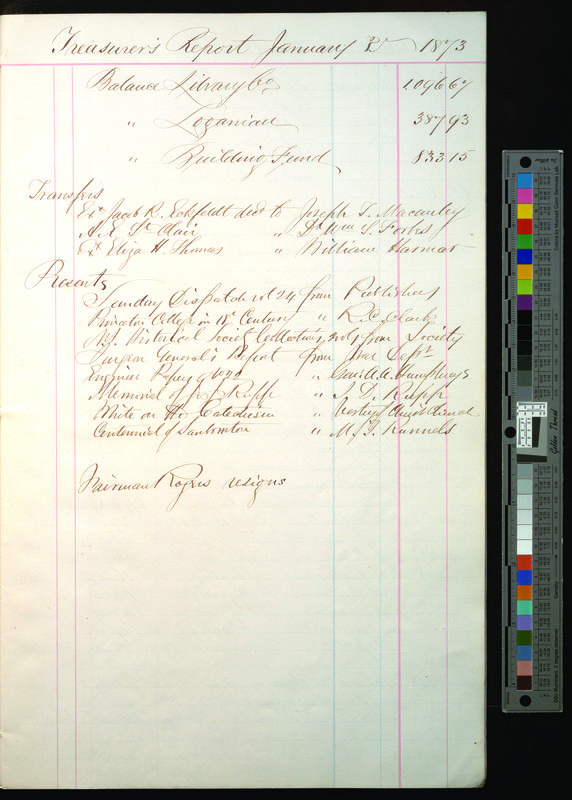 Treasurer's Report January 2d 1873
Balance Library Co 1,096 67
" Loganian 387 93
" Building Fund 833 15
Transfers
Ext Jacob R. Eckfeldt decd to Joseph T. Macauley
A. E. St Clair " Dr Wm S. Forbes
Ext Eliza H. Thomas " William Harmar
Presents
Sunday Dispatch vol 24 from Publishers
Princeton College in 18t Century " R. C. Clark
N.J. Historical Society Collections, vol 7 from Society
Surgeon General's Report from War Dept
Engineer Papers " Genl A. A. Humphreys
Memorial of J. J. Rapp " I. D. Rupp
White on the Catechism " Vestry of Christ Church
Centennial of Sanbornton " M. T. Runnels
Fairman Rogers resigns
Golden Thread